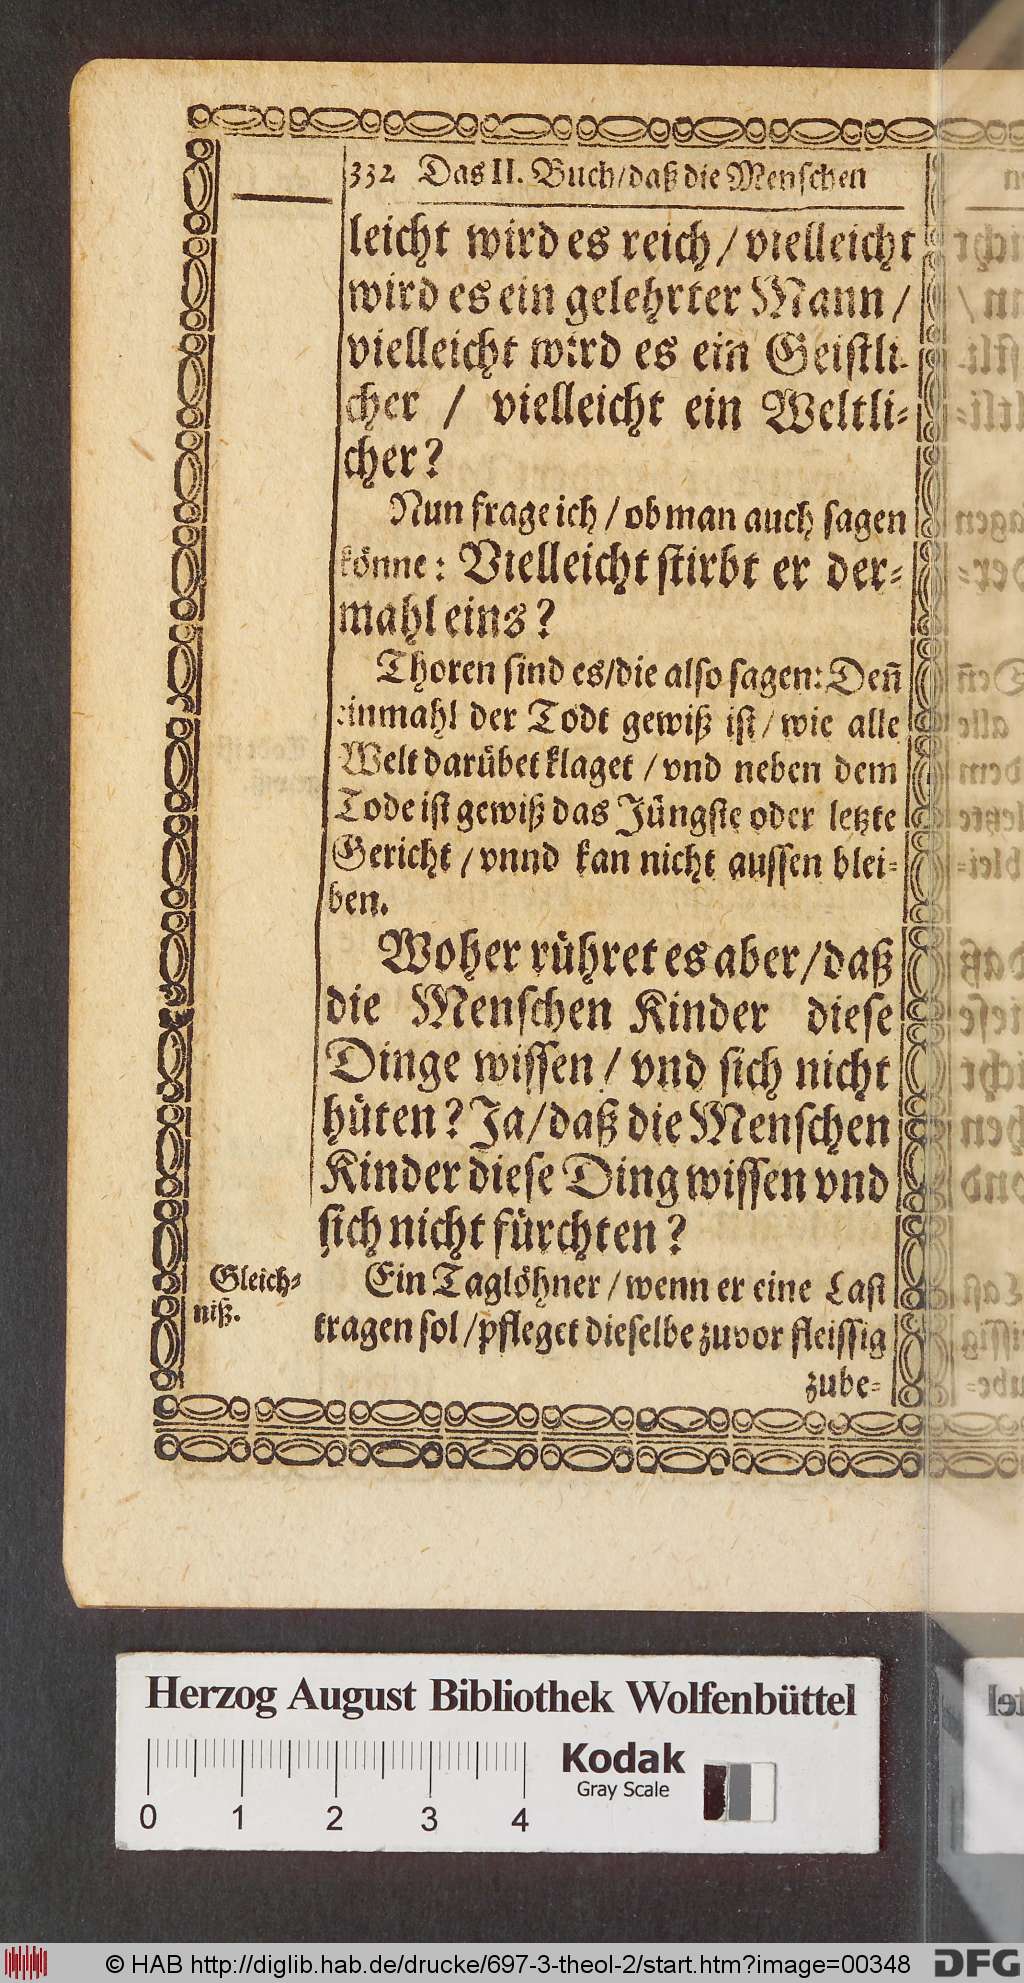 332 Das II. Buch/daß die Menschen
leicht wird es reich/vielleicht
wird es ein gelehrter Mann/
vielleicht wird es ein Geistli-
cher / vielleicht ein Weltli-
cher?
Nun frage ich/ob man auch sagen
könne: Vielleicht stirbt er der-
mahl eins?
Thoren sind es/die also sagen: Deñ
einmahl der Todt gewiß ist/wie alle
Welt darübet klaget/vnd neben dem
Tode ist gewiß das Jüngste oder letzte
Gericht/vnnd kan nicht aussen blei-
ben.
Woher rühret es aber/daß
die Menschen Kinder diese
Dinge wissen/vnd sich nicht
hüten? Ja/daß die Menschen
Kinder diese Ding wissen vnd
sich nicht fürchten?
Gleich-
niß.
Ein Taglöhner/wenn er eine Last
tragen sol/pfleget dieselbe zuvor fleissig
zube-
Herzog August Bibliothek Wolfenbüttel
Kodak
Gray Scale
0 1 2 3 4
© HAB http://diglib.hab.de/drucke/697-3-theol-2/start.htm?image=00348
DFG